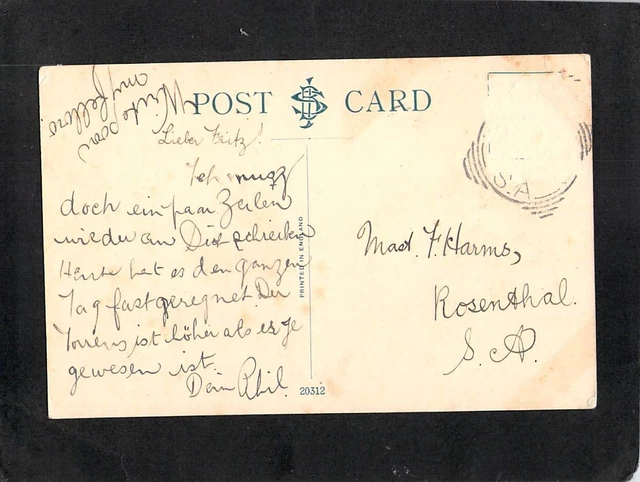 Write soon
POST CARD
Lieber Fritz!
Ich muss
doch ein paar Zeilen
wieder an Dich schreiben
Heute hat es den ganzen
Tag fast geregnet. Der
Torrens ist höher als er je
gewesen ist.
Dein Phil.
PRINTED IN ENGLAND
20312
S.A
Mast. F. Harms,
Rosenthal.
S. A.